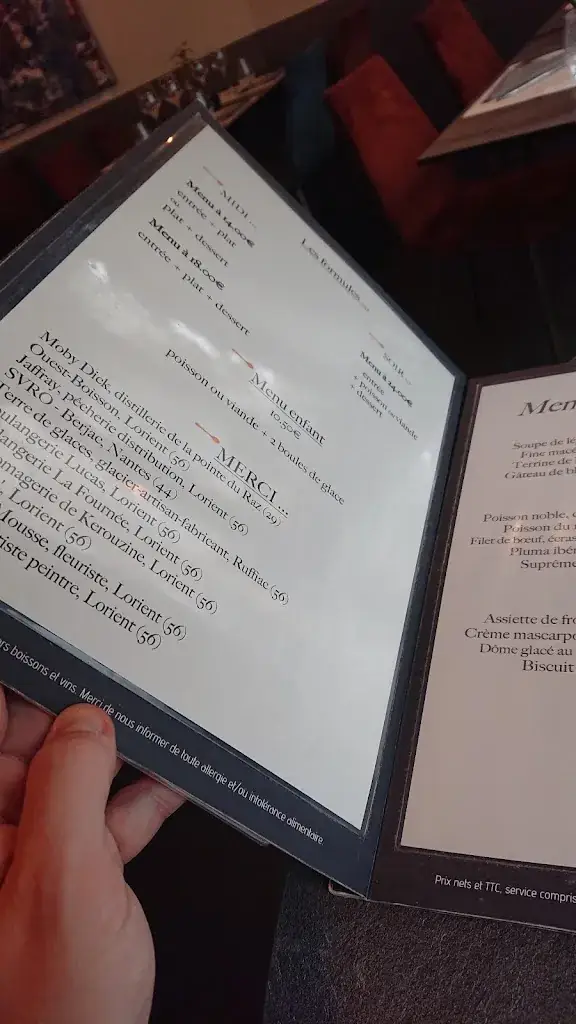 Les formules...
MIDI
Menu à 14.00€
entrée + plat
ou
plat + dessert
Menu à 18.00€
entrée + plat + dessert
SOIR
Menu à 24.00€
entrée
+ poisson ou viande
+ dessert
Menu enfant
10.50€
poisson ou viande + 2 boules de glace
MERCI...
Moby Dick, distillerie de la pointe du Raz (29)
Ouest-Boisson, Lorient (56)
Jaffray, pêcherie distribution, Lorient (56)
SVRO - Berjac, Nantes (44)
Terre de glaces, glacier-artisan-fabricant, Ruffiac (56)
Boulangerie Lucas, Lorient (56)
Boulangerie La Fournée, Lorient (56)
Fromagerie de Kerouzine, Lorient (56)
Lorient (56)
Mousse, fleuriste, Lorient (56)
peintre, Lorient (56)
boissons et vins. Merci de nous informer de toute allergie et/ou intolérance alimentaire.
Men
Soupe de
Fine
Terrine de
Gâteau de
Poisson noble,
Poisson du
Filet de bœuf,
Pluma
Suprême
Assiette de
Crème
Dôme glacé au
Biscuit
Prix nets et TTC, service compris